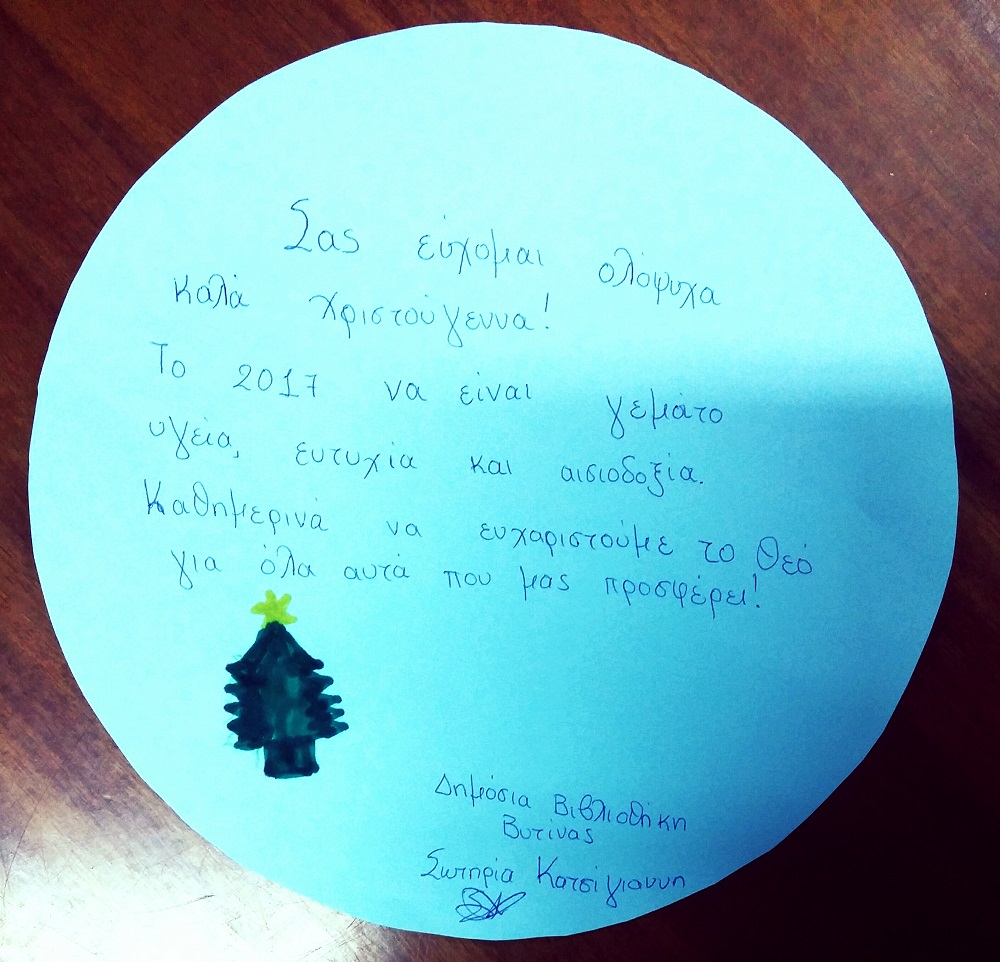 Σας εύχομαι ολόψυχα
καλά Χριστούγεννα!
Το 2017 να είναι γεμάτο
υγεία, ευτυχία και αισιοδοξία.
Καθημερινά να ευχαριστούμε το Θεό
για όλα αυτά που μας προσφέρει!
Δημόσια Βιβλιοθήκη
Βυτίνας
Σωτηρία Κατσίγιαννη